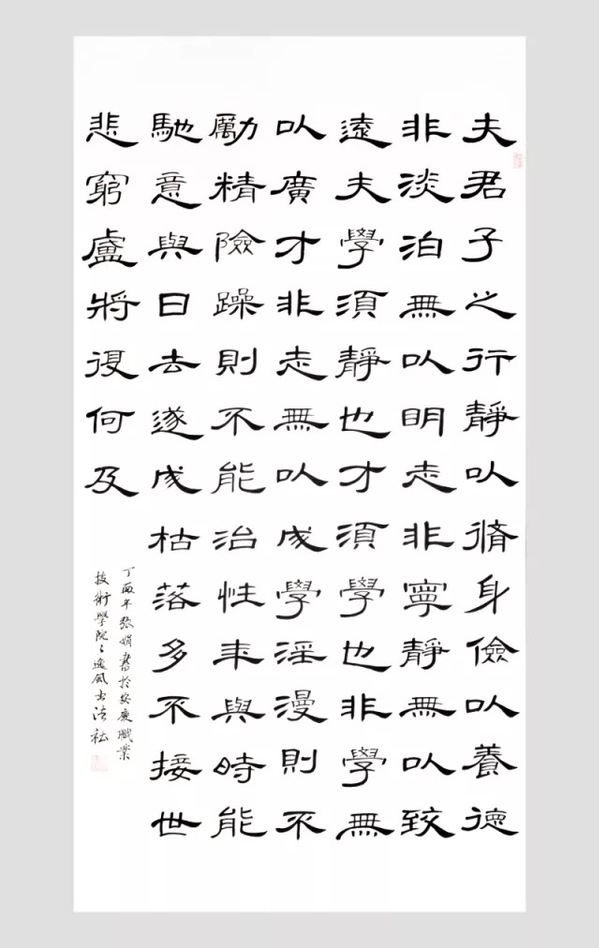 夫君子之行靜以脩身儉以養德
非淡泊無以明志非寧靜無以致
遠夫學須靜也才須學也非學無
以廣才非志無以成學淫漫則不
勵精險躁則不能治性年與時能
馳意與日去遂成枯落多不接世
悲窮盧將復何及
丁酉年張娟書於安慶職業
技術學院逸風书法社